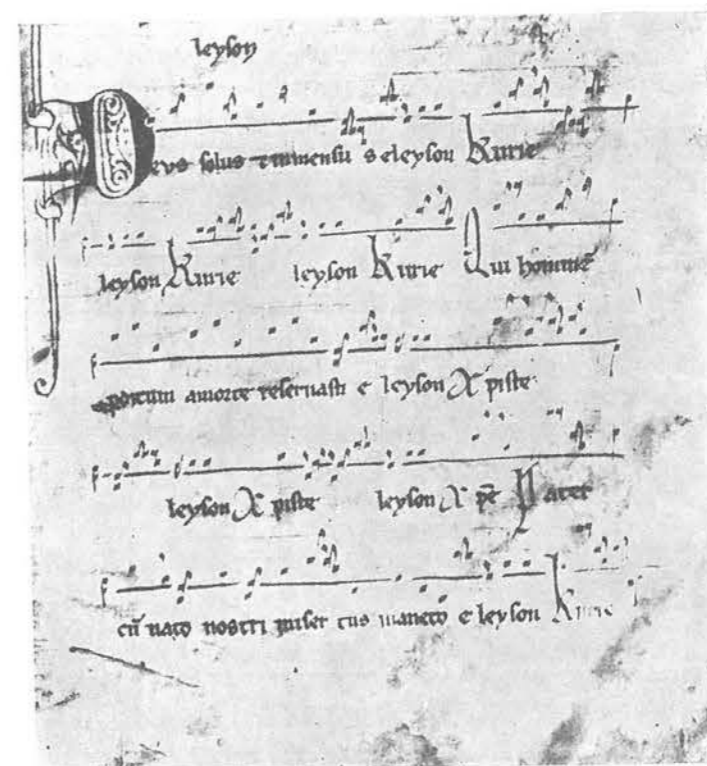 leyson
Deus solus inmensu s eleyson Kirie
leyson Kirie leyson Kirie Qui hominē
amorte reseruasti e leyson X piste
leyson X piste leyson X pē Pater
cū nato nostri miser tus maneto e leyson Kirie